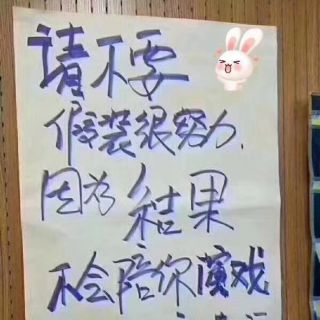 请不要
假装很努力.
因为结果
不会陪你演戏